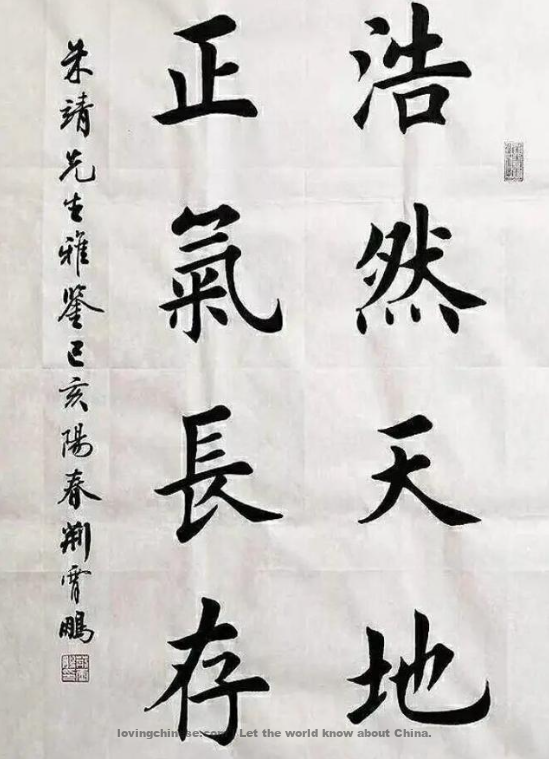 浩然天地
正氣長存
朱靖先生雅鑒己亥陽春荊霄鵬
lovingchinese.com Let the world know about China.